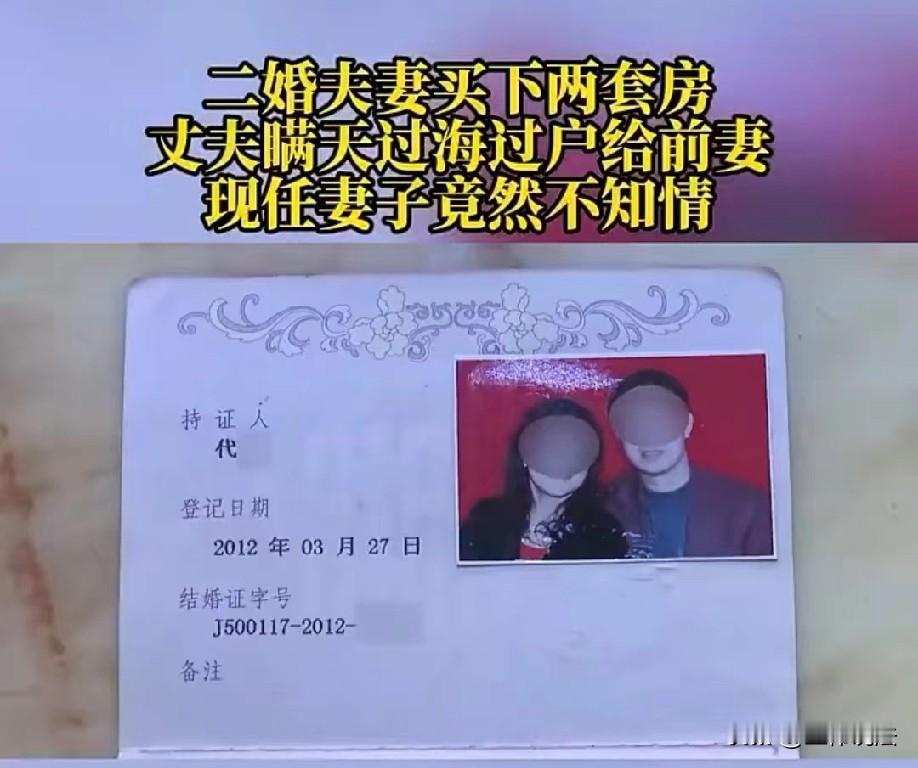 二婚夫妻买下两套房
丈夫瞒天过海过户给前妻
现任妻子竟然不知情
持证人
代
登记日期
2012 年 03 月 27 日
结婚证字号
J500117-2012-
备注